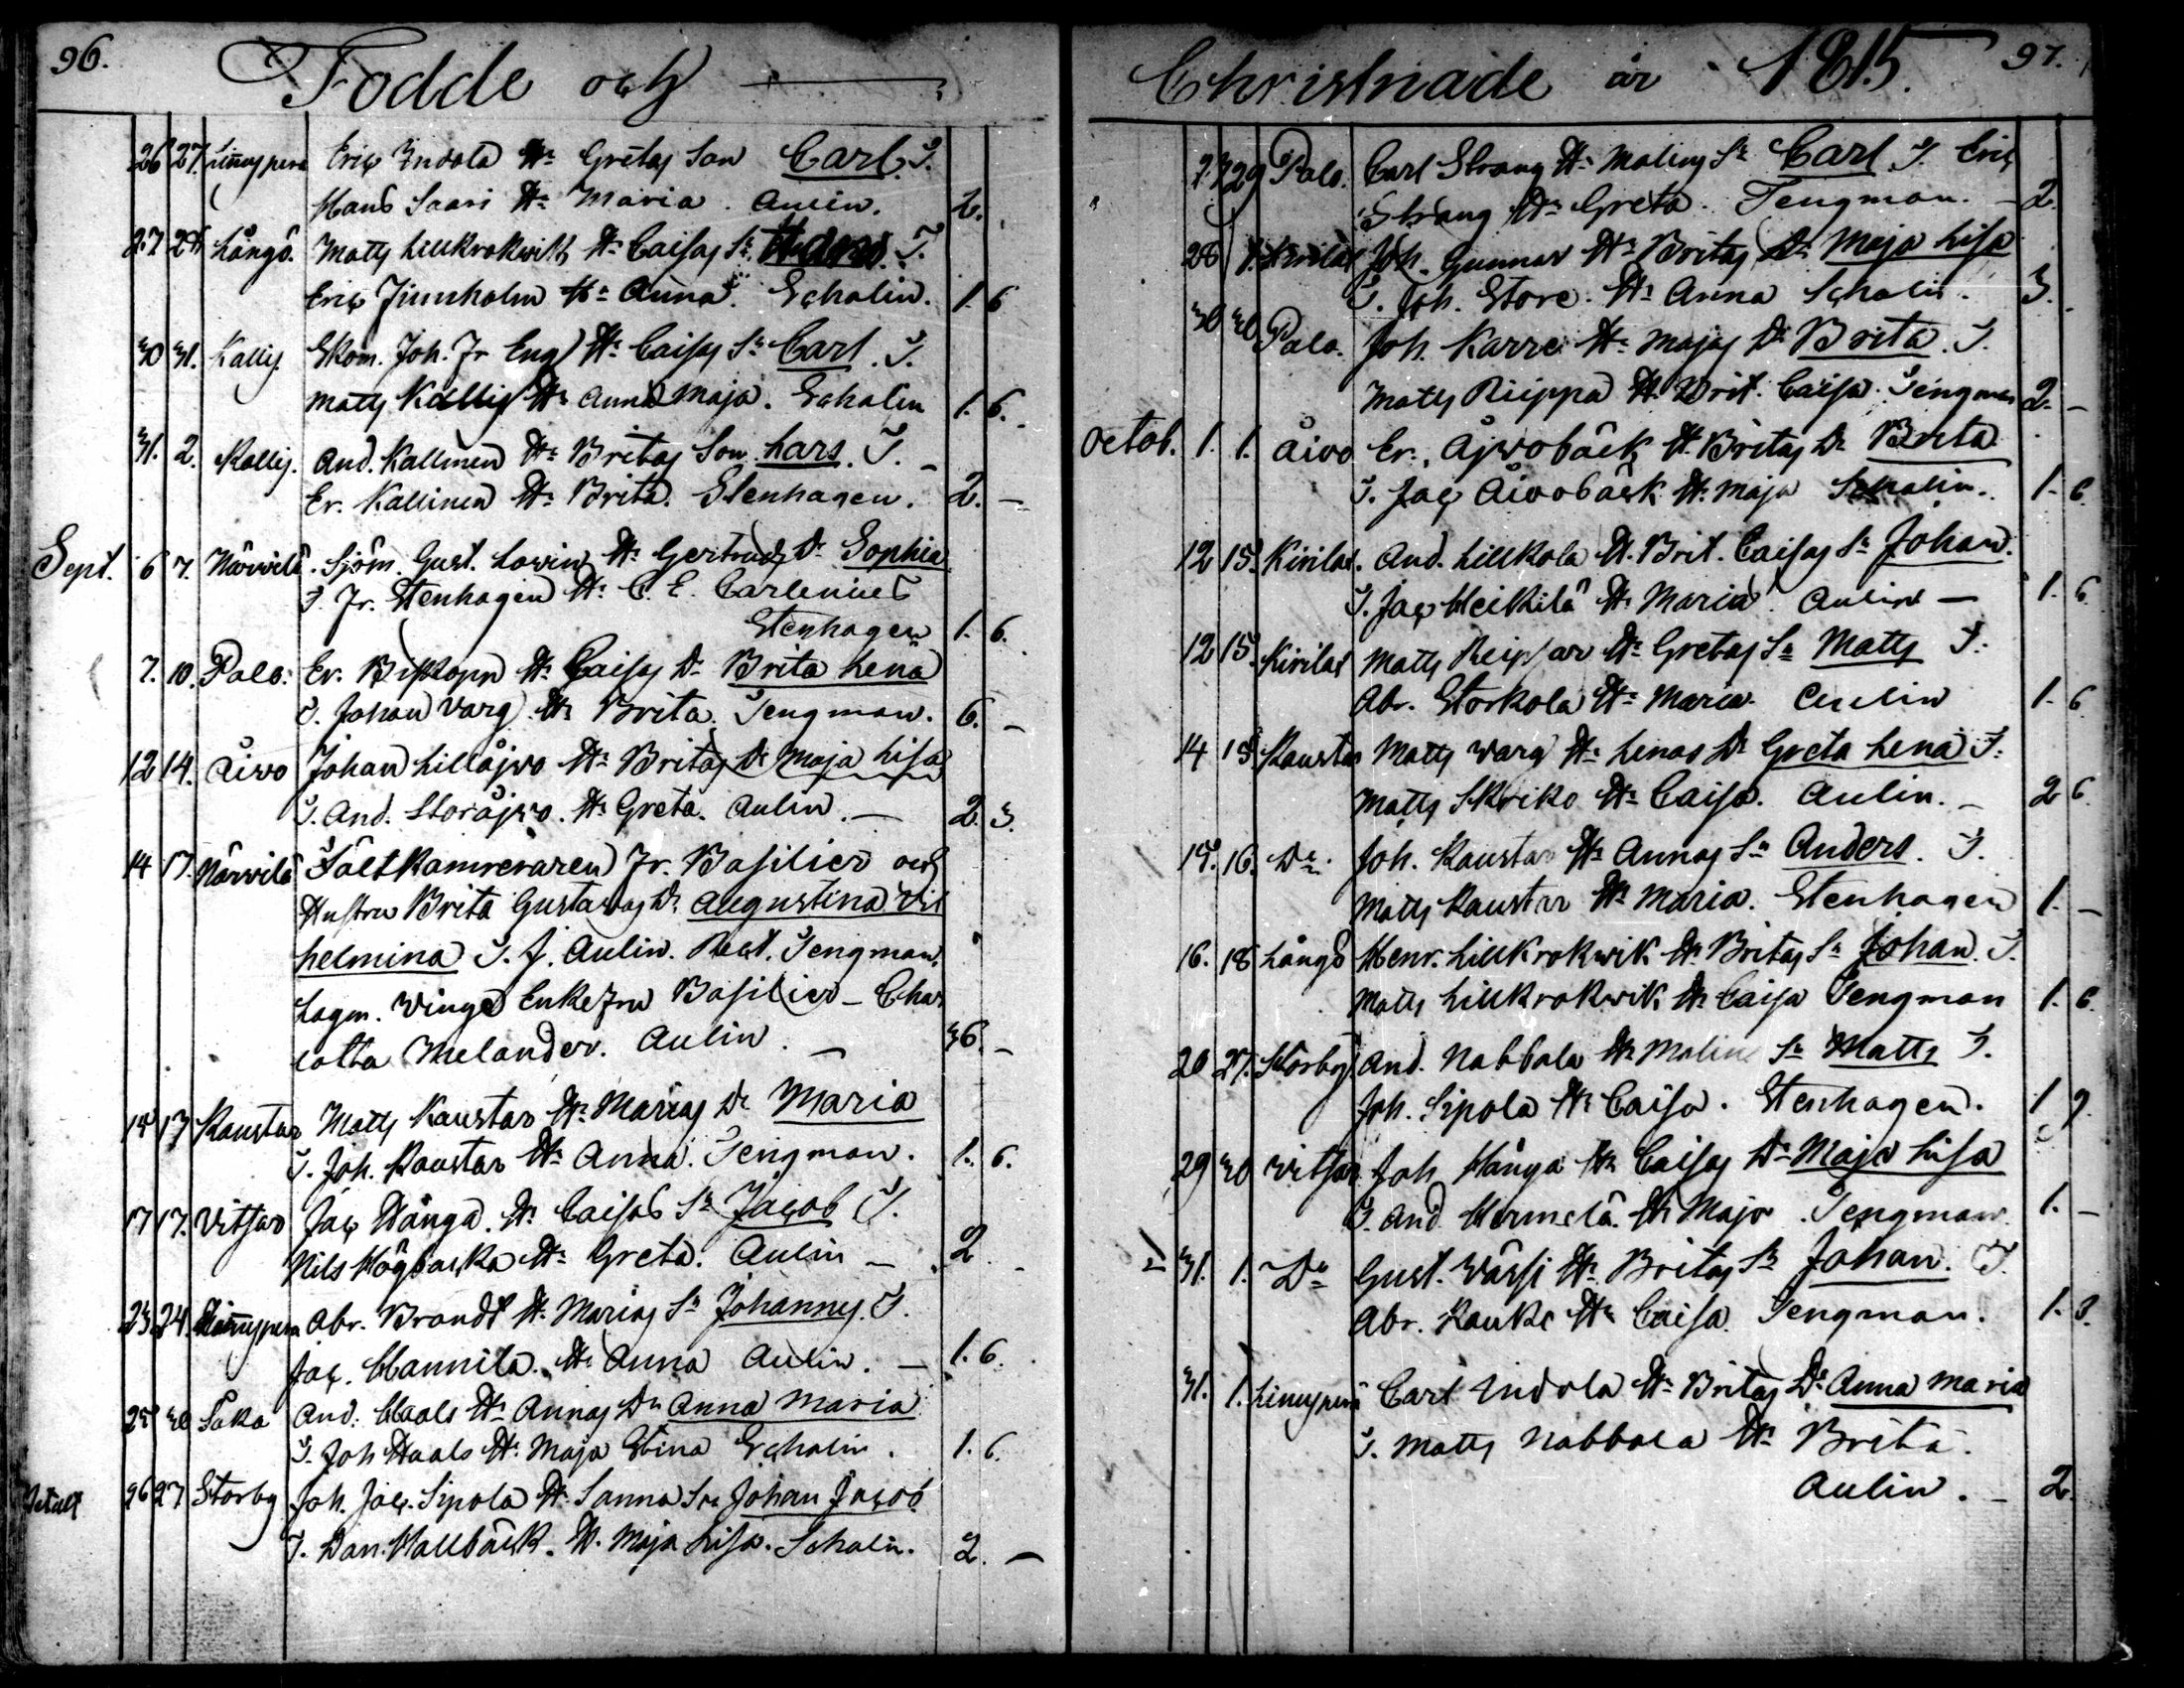 96.
Födde och
26 27. Linnusperä Eric Indola H. Gretas Son Carl. T.
Hans Saari H. Maria. Aulin. 2.
27 28 Långö. Matts Lillkrokwik H. Caisas S. T.
Eric Jimnholm H. Anna. Scholin. 1. 6
30 31. Kallis Skom. Joh. Fr Eng H. Caisas S. Carl. T.
Matts Kallis H. Anna Maja. Scholin 1. 6.
31. 2. Kallis. And. Kallinen H. Britas Son Lars. T.
Er. Kallinen H. Brita. Stenhagen. 2. –
Sept. 6 7. Närvilä. Sjöm. Gust. Lovin H. Gertruds D. Sophia
T. Fr. Stenhagen H. C. E. Carlenius
Stenhagen 1. 6.
7. 10. Palo. Er. Biskopp H. Caisas D. Brita Lena
T. Johan Varg. H. Brita. Tengman. 6. –
12 14. Åivo Johan Lillåjvo H. Britas D. Maja Lisa
T. And. Storåjvo. H. Greta. Aulin. – 2. 3.
14 17. Närvilä Fältkamreraren Fr. Basilier och
Hustru Brita Gustavas D. Augustina Vil
helmina T. J. Aulin. Rect. Tengman.
Lagm. Winge EnkeFru Basilier – Char
lotta Melander. Aulin. – 36. –
15 17 Kaustar Matts Kaustar H. Marias D. Maria
T. Joh. Kaustar H. Anna. Tengman. 1. 6.
17 17. Vitsar Jac Hånga. H. Caisas S. Jacob T.
Nils Högbacka H. Greta. Aulin – 2 –
23. 24. Linnusperä Abr. Brandt H. Marias S. Johannes. T.
Jac. Mannila. H. Anna Aulin. – 1. 6.
25 30 Såka And. Haals H. Annas D. Anna Maria
T. Joh Haals H. Maja Stina Scholin. 1. 6.
26 27 Storby Joh. Jac. Sipola H. Sanna S. Johan Jacob
T. Dan. Hallbäck. H. Maja Lisa. Scholin. 2. –
Christnade år 1815. 97.
27 29 Palo. Carl Strang H. Malins S. Carl T. Eric
Strang H. Greta. Tengman. – 2.
28 1. Kirilax Joh. Gunnar H. Britas D. Maja Lisa
T. Joh. Store. H. Anna Scholin. 3.
30 30 Palo. Joh. Karre H. Majas D. Brita. T.
Matts Riippa H. Brit. Caisa. Tengman 2. –
Octob. 1. 1. Åivo Er. Åjvobäck H. Britas D. Brita
T. Jac Åivobäck H. Maja Scholin. 1. 6
12 15. Kirilax. And. Lillkola H. Brit. Caisas S. Johan.
T. Jac Heikilä H. Maria. Aulin – 1. 6.
12 15. Kirilax Matts Reipsar H. Gretas S. Matts T.
Abr. Storkola H. Maria. Aulin 1. 6
14 15. Kaustar Matts Varg H. Lenas D. Greta Lena T.
Matts Skriko H. Caisa. Aulin. – 2 6.
15. 16. D. Joh. Kaustar H. Annas S. Anders. T.
Matts Kaustar H. Maria. Stenhagen 1. –
16. 18 Långö Henr. Lillkrokwik H. Britas S. Johan. T.
Matts Lillkrokwik H. Caisa Tengman 1. 6.
20 27. Storby. And. Nabbala H. Malins S. Matts T.
Joh. Sipola H. Caisa. Stenhagen. 1 9.
29 30 Vitsar Joh Hånga H. Caisas D. Maja Lisa
T. And. Hermelä. H. Maja. Tengman. 1. –
31. 1. D Gust. Wässi H. Britas S. Johan. T.
Abr. Kauke H. Caisa Tengman. 1. 3.
31. 1. Linusperä Carl Indola H. Britas D. Anna Maria
T. Matts Nabbala H. Brita.
Aulin. – 2.